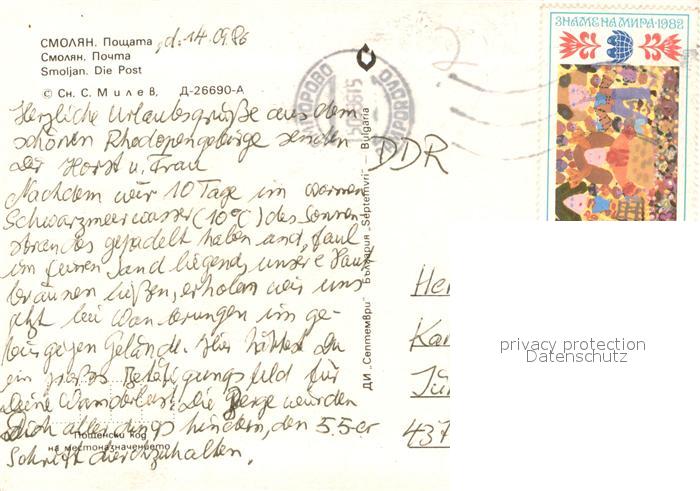 СМОЛЯН. Пощата
Смолян. Почта
Smoljan. Die Post
© Сн. С. Милев, Д-26690-А
d. 14.09.86
ЗНАМЕ НА МИРА·1982
Herzliche Urlaubsgrüße aus dem
schönen Rhodopengebirge senden
der Horst u. Frau
Nachdem wir 10 Tage im warmen
Schwarzmeerwasser (10°C) des Sonnen-
strandes gepadelt haben und, faul
im feinen Sand liegend, unsere Haut
bräunen ließen, erholen wir uns
jetzt bei Wanderungen im ge-
birgigen Gelände. Hier hättest Du
ein großes Betätigungsfeld für
Deine Wanderlust. Die Berge würden
Dich allerdings hindern, den 5.5-er
Schritt durchzuhalten.
Пощенски код
на местоназначението
ДИ „Септември" България „Septemvri" — Bulgaria
DDR
He
Ka
437
privacy protection
Datenschutz